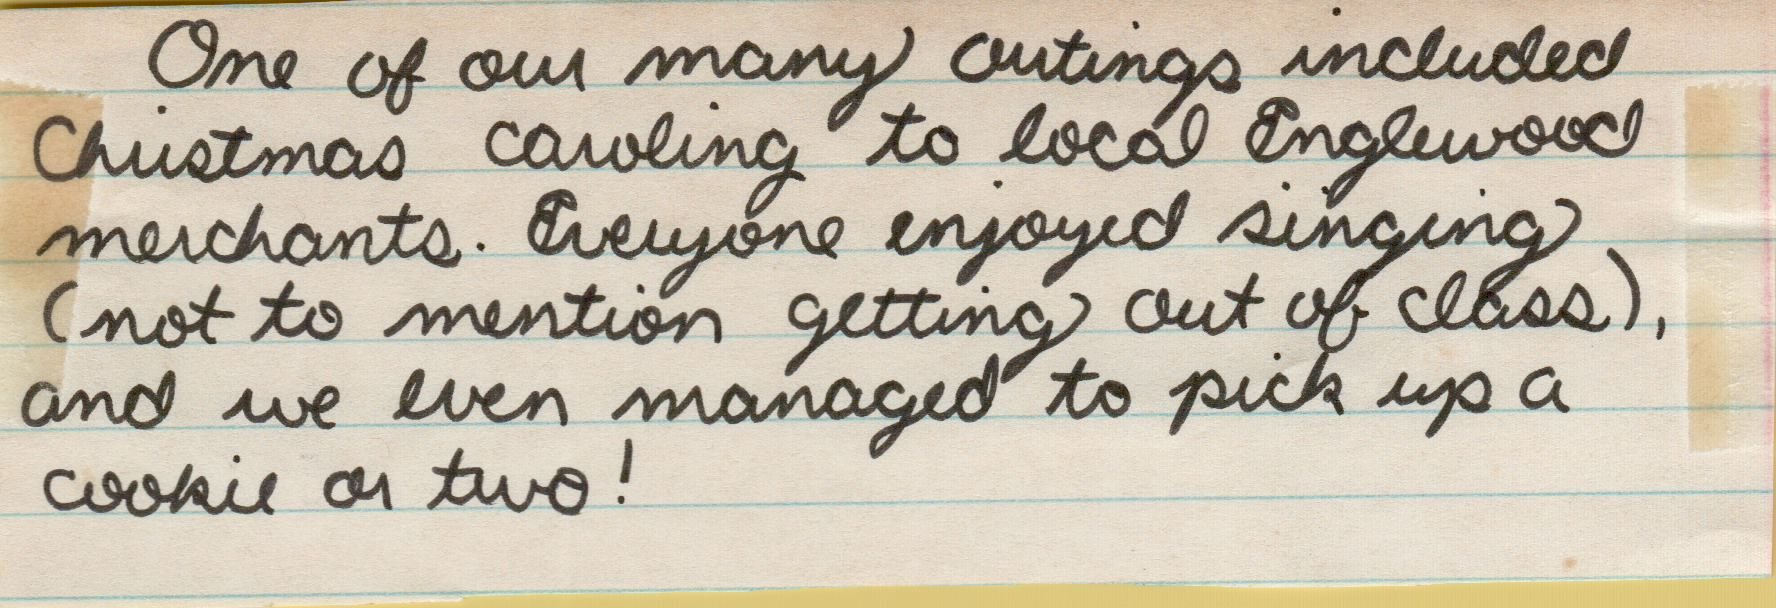 One of our many outings included
Christmas caroling to local Englewood
merchants. Everyone enjoyed singing
(not to mention getting out of class),
and we even managed to pick up a
cookie or two!